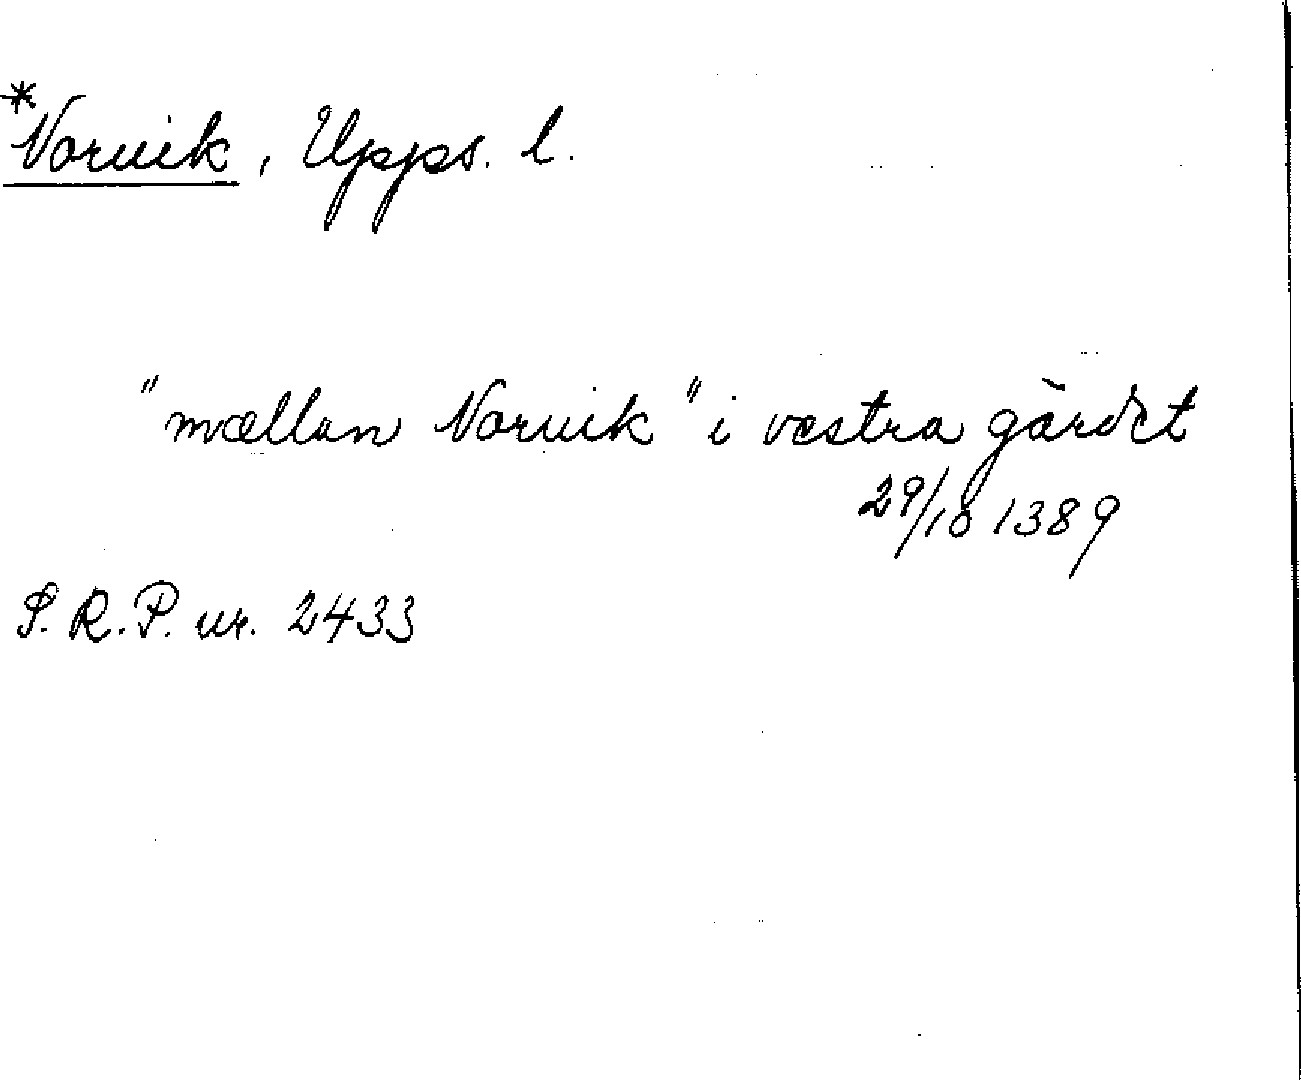 *Norvik, Upps. l.
"mællan Norvik" i västra gärdet
29/10 1389
S.R.P. nr. 2433